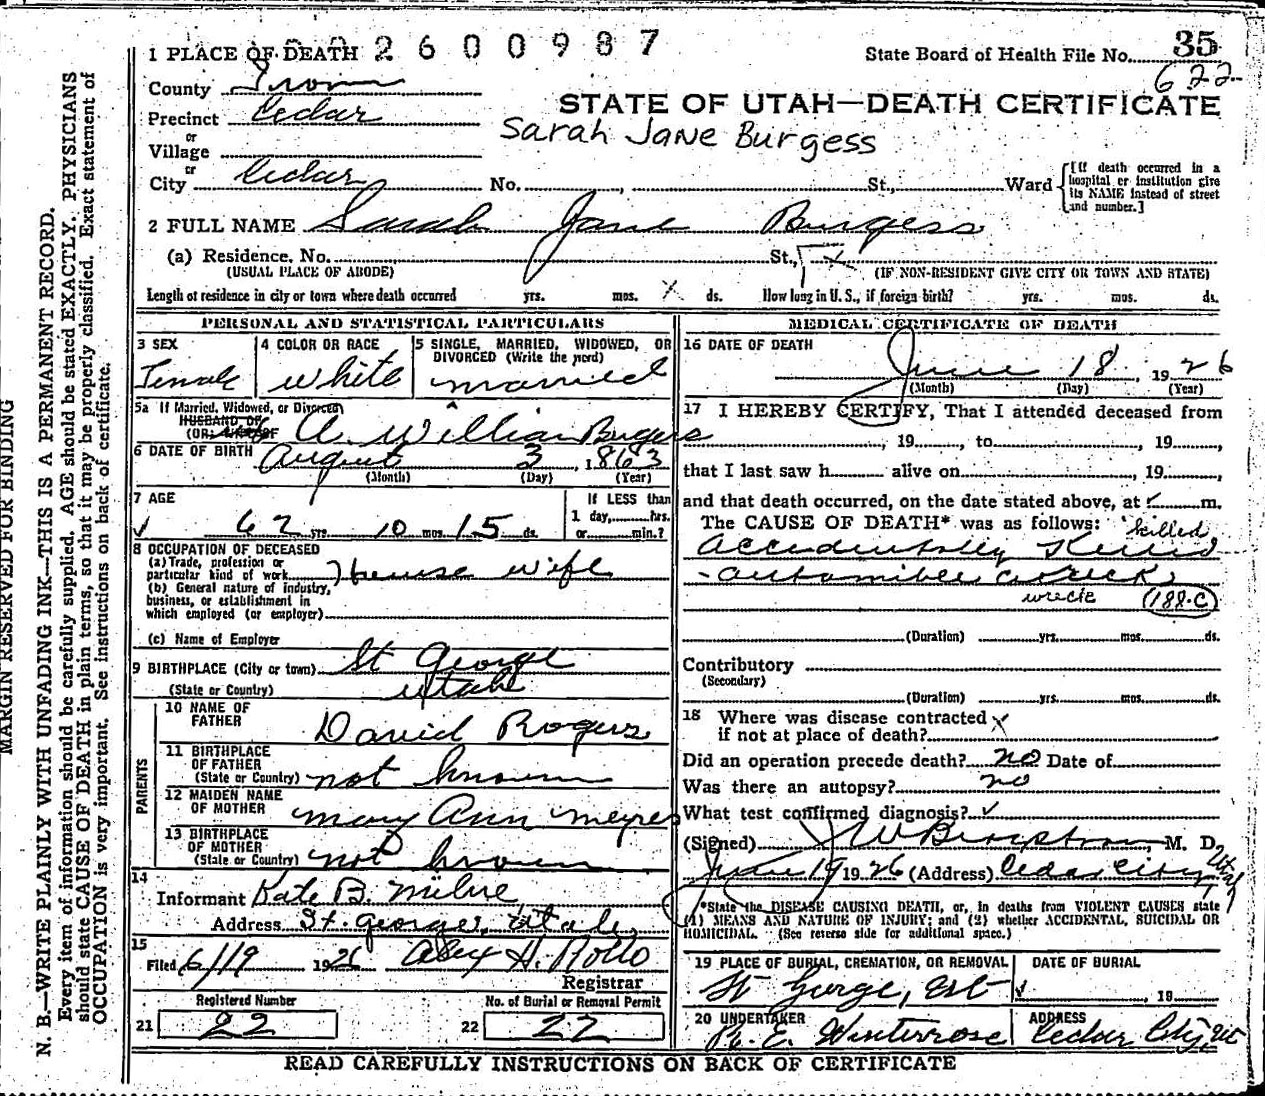 2600987
1 PLACE OF DEATH
State Board of Health File No. 35
622
County Iron
STATE OF UTAH—DEATH CERTIFICATE
Precinct Cedar
Sarah Jane Burgess
or
Village
or
City Cedar No. , St., Ward
[If death occurred in a
hospital or institution give
its NAME instead of street
and number.]
2 FULL NAME Sarah Jane Burgess
(a) Residence. No. St.,
(USUAL PLACE OF ABODE) (IF NON-RESIDENT GIVE CITY OR TOWN AND STATE)
Length of residence in city or town where death occurred yrs. mos. ds. How long in U. S., if foreign birth? yrs. mos. ds.
PERSONAL AND STATISTICAL PARTICULARS
3 SEX
Female
4 COLOR OR RACE
white
5 SINGLE, MARRIED, WIDOWED, OR
DIVORCED (Write the word)
married
5a If Married, Widowed, or Divorced
HUSBAND OF
(OR) WIFE OF A. William Burgess
6 DATE OF BIRTH August 3, 1863
(Month) (Day) (Year)
7 AGE
62 yrs. 10 mos. 15 ds.
If LESS than
1 day, hrs.
or min.?
8 OCCUPATION OF DECEASED
(a) Trade, profession or
particular kind of work House wife
(b) General nature of industry,
business, or establishment in
which employed (or employer)
(c) Name of Employer
9 BIRTHPLACE (City or town) St George
(State or Country) Utah
PARENTS
10 NAME OF
FATHER David Rogers
11 BIRTHPLACE
OF FATHER
(State or Country) not known
12 MAIDEN NAME
OF MOTHER Mary Ann Meyres
13 BIRTHPLACE
OF MOTHER
(State or Country) not known
14
Informant Kate B. Milne
Address St. George, Utah
15
Filed 6/19 1926 Alex H. Rollo
Registrar
Registered Number
21 22
No. of Burial or Removal Permit
22 22
MEDICAL CERTIFICATE OF DEATH
16 DATE OF DEATH
June 18, 1926
(Month) (Day) (Year)
17 I HEREBY CERTIFY, That I attended deceased from
, 19 , to , 19 ,
that I last saw h alive on , 19
and that death occurred, on the date stated above, at m.
The CAUSE OF DEATH* was as follows: killed
Accidentally Killed
-automibile wreck
wreck 188-C
(Duration) yrs. mos. ds.
Contributory
(Secondary)
(Duration) yrs. mos. ds.
18 Where was disease contracted
if not at place of death?
Did an operation precede death? no Date of
Was there an autopsy? no
What test confirmed diagnosis?
(Signed) J W Bergstrom, M. D.
June 19 1926 (Address) Cedar City, Utah
*State the DISEASE CAUSING DEATH, or, in deaths from VIOLENT CAUSES state
(1) MEANS AND NATURE OF INJURY; and (2) whether ACCIDENTAL, SUICIDAL OR
HOMICIDAL. (See reverse side for additional space.)
19 PLACE OF BURIAL, CREMATION, OR REMOVAL
St George, Ut
DATE OF BURIAL
, 19
20 UNDERTAKER
E. Winterrose
ADDRESS
Cedar City, Ut
READ CAREFULLY INSTRUCTIONS ON BACK OF CERTIFICATE
MARGIN RESERVED FOR BINDING
N. B.—WRITE PLAINLY WITH UNFADING INK—THIS IS A PERMANENT RECORD.
Every item of information should be carefully supplied. AGE should be stated EXACTLY. PHYSICIANS
should state CAUSE OF DEATH in plain terms, so that it may be properly classified. Exact statement of
OCCUPATION is very important. See instructions on back of certificate.